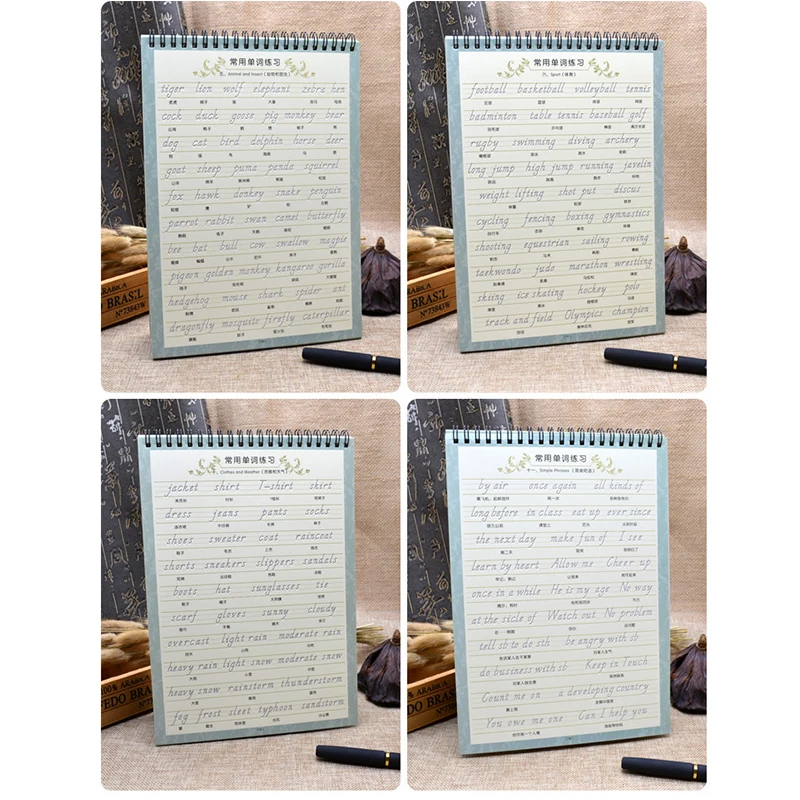 常用单词练习
五、Animal and Insect（动物和昆虫）
tiger lion wolf elephant zebra hen
老虎 狮子 狼 大象 斑马 母鸡
cock duck goose pig monkey bear
公鸡 鸭子 鹅 猪 猴子 熊
dog cat bird dolphin horse deer
狗 猫 鸟 海豚 马 鹿
goat sheep puma panda squirrel
山羊 绵羊 美洲狮 熊猫 松鼠
fox hawk donkey snake penguin
狐狸 鹰 驴 蛇 企鹅
parrot rabbit swan camel butterfly
鹦鹉 兔子 天鹅 骆驼 蝴蝶
bee bat bull cow swallow magpie
蜜蜂 蝙蝠 公牛 奶牛 燕子 喜鹊
pigeon golden monkey kangaroo gorilla
鸽子 金丝猴 袋鼠 大猩猩
hedgehog mouse shark spider ant
刺猬 老鼠 鲨鱼 蜘蛛 蚂蚁
dragonfly mosquito firefly caterpillar
蜻蜓 蚊子 萤火虫 毛毛虫
ARABICA
DO BRASIL
Nº73843W
常用单词练习
六、Sport（体育）
football basketball volleyball tennis
足球 篮球 排球 网球
badminton table tennis baseball golf
羽毛球 乒乓球 棒球 高尔夫球
rugby swimming diving archery
橄榄球 游泳 跳水 射箭
long jump high jump running javelin
跳远 跳高 跑步 标枪
weight lifting shot put discus
举重 铅球 铁饼
cycling fencing boxing gymnastics
自行车 击剑 拳击 体操
shooting equestrian sailing rowing
射击 马术 帆船 赛艇
taekwondo judo marathon wrestling
跆拳道 柔道 马拉松 摔跤
skiing ice skating hockey polo
滑雪 滑冰 曲棍球 马球
track and field Olympics champion
田径 奥林匹克 冠军
ARABICA
DO BRASIL
Nº73843W
常用单词练习
十、Clothes and Weather（衣服和天气）
jacket shirt T-shirt skirt
夹克衫 衬衫 T恤衫 短裙子
dress jeans pants socks
连衣裙 牛仔裤 长裤 袜子
shoes sweater coat raincoat
鞋子 毛衣 上衣 雨衣
shorts sneakers slippers sandals
短裤 运动鞋 拖鞋 凉鞋
boots hat sunglasses tie
靴子 帽子 太阳镜 领带
scarf gloves sunny cloudy
围巾 手套 晴天 多云
overcast light rain moderate rain
阴天 小雨 中雨
heavy rain light snow moderate snow
大雨 小雪 中雪
heavy snow rainstorm thunderstorm
大雪 暴雨 雷雨
fog frost sleet typhoon sandstorm
雾 霜冻 雨夹雪 台风 沙尘暴
100% ARABICA
FEDO BRASIL
常用单词练习
十一、Simple Phrases（简单短语）
by air once again all kinds of
乘飞机，航邮措待 再一次 各种各样的
long before in class eat up ever since
很久以前 课堂上 吃光 从那时起
the next day make fun of I see
第二天 取笑 我明白了
learn by heart Allow me Cheer up
牢记；熟记 让我来 振作起来
once in a while He is my age No way
偶尔，有时 他和我同岁 不行
at the sicle of Watch out No problem
在······侧面 当心 没问题
tell sb to do sth be angry with sb
告诉某人去干某事 对某人生气
do business with sb Keep in Touch
和某人做生意 保持联系
Count me on a developing country
算上我 发展中国家
You owe me one Can I help you
你欠我一个人情 我能帮你吗
100% ARABICA
FEDO BRASIL